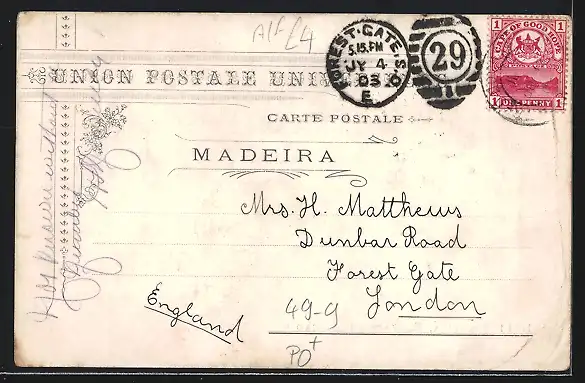 UNION POSTALE UNIVERS
CARTE POSTALE
MADEIRA
FOREST-GATE. S.O.
5.15.PM
JY 4
03
E.
29
1 CAPE OF GOOD HOPE 1
1 ONE PENNY 1
Mrs. H. Matthews
Dunbar Road
Forest Gate
London
England
49-9
PO+
Not known without